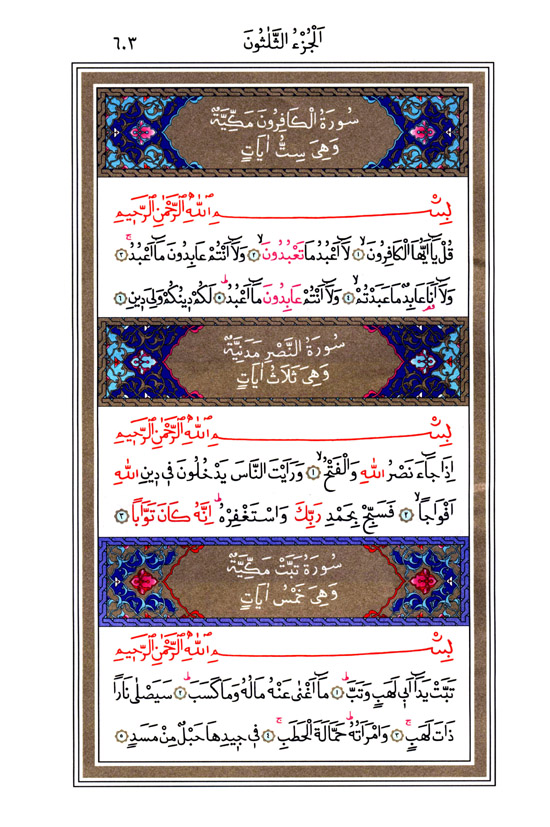 ٦٠٣ اَلْجُزْءُ الثَّلٰثُونَ
سُورَةُ الْكَافِرُونَ مَكِّيَّةٌ
وَهِيَ سِتُّ اٰيَاتٍ
بِسْمِ اللّٰهِ الرَّحْمٰنِ الرَّحِيمِ
قُلْ يَٓا اَيُّهَا الْكَافِرُونَۙ ﴿١﴾ لَٓا اَعْبُدُ مَا تَعْبُدُونَۙ ﴿٢﴾ وَلَٓا اَنْتُمْ عَابِدُونَ مَٓا اَعْبُدُۚ ﴿٣﴾
وَلَٓا اَنَا۬ عَابِدٌ مَا عَبَدْتُمْۙ ﴿٤﴾ وَلَٓا اَنْتُمْ عَابِدُونَ مَٓا اَعْبُدُۜ ﴿٥﴾ لَكُمْ دِينُكُمْ وَلِيَ دِينِ ﴿٦﴾
سُورَةُ النَّصْرِ مَدَنِيَّةٌ
وَهِيَ ثَلَاثُ اٰيَاتٍ
بِسْمِ اللّٰهِ الرَّحْمٰنِ الرَّحِيمِ
اِذَا جَٓاءَ نَصْرُ اللّٰهِ وَالْفَتْحُۙ ﴿١﴾ وَرَاَيْتَ النَّاسَ يَدْخُلُونَ ف۪ي د۪ينِ اللّٰهِ
اَفْوَاجاًۙ ﴿٢﴾ فَسَبِّحْ بِحَمْدِ رَبِّكَ وَاسْتَغْفِرْهُۜ اِنَّهُ كَانَ تَوَّاباً ﴿٣﴾
سُورَةُ تَبَّتْ مَكِّيَّةٌ
وَهِيَ خَمْسُ اٰيَاتٍ
بِسْمِ اللّٰهِ الرَّحْمٰنِ الرَّحِيمِ
تَبَّتْ يَدَٓا اَب۪ي لَهَبٍ وَتَبَّۜ ﴿١﴾ مَٓا اَغْنٰى عَنْهُ مَالُهُ وَمَا كَسَبَۜ ﴿٢﴾ سَيَصْلٰى نَاراً
ذَاتَ لَهَبٍۚ ﴿٣﴾ وَامْرَاَتُهُۜ حَمَّالَةَ الْحَطَبِۚ ﴿٤﴾ ف۪ي ج۪يدِهَا حَبْلٌ مِنْ مَسَدٍ ﴿٥﴾